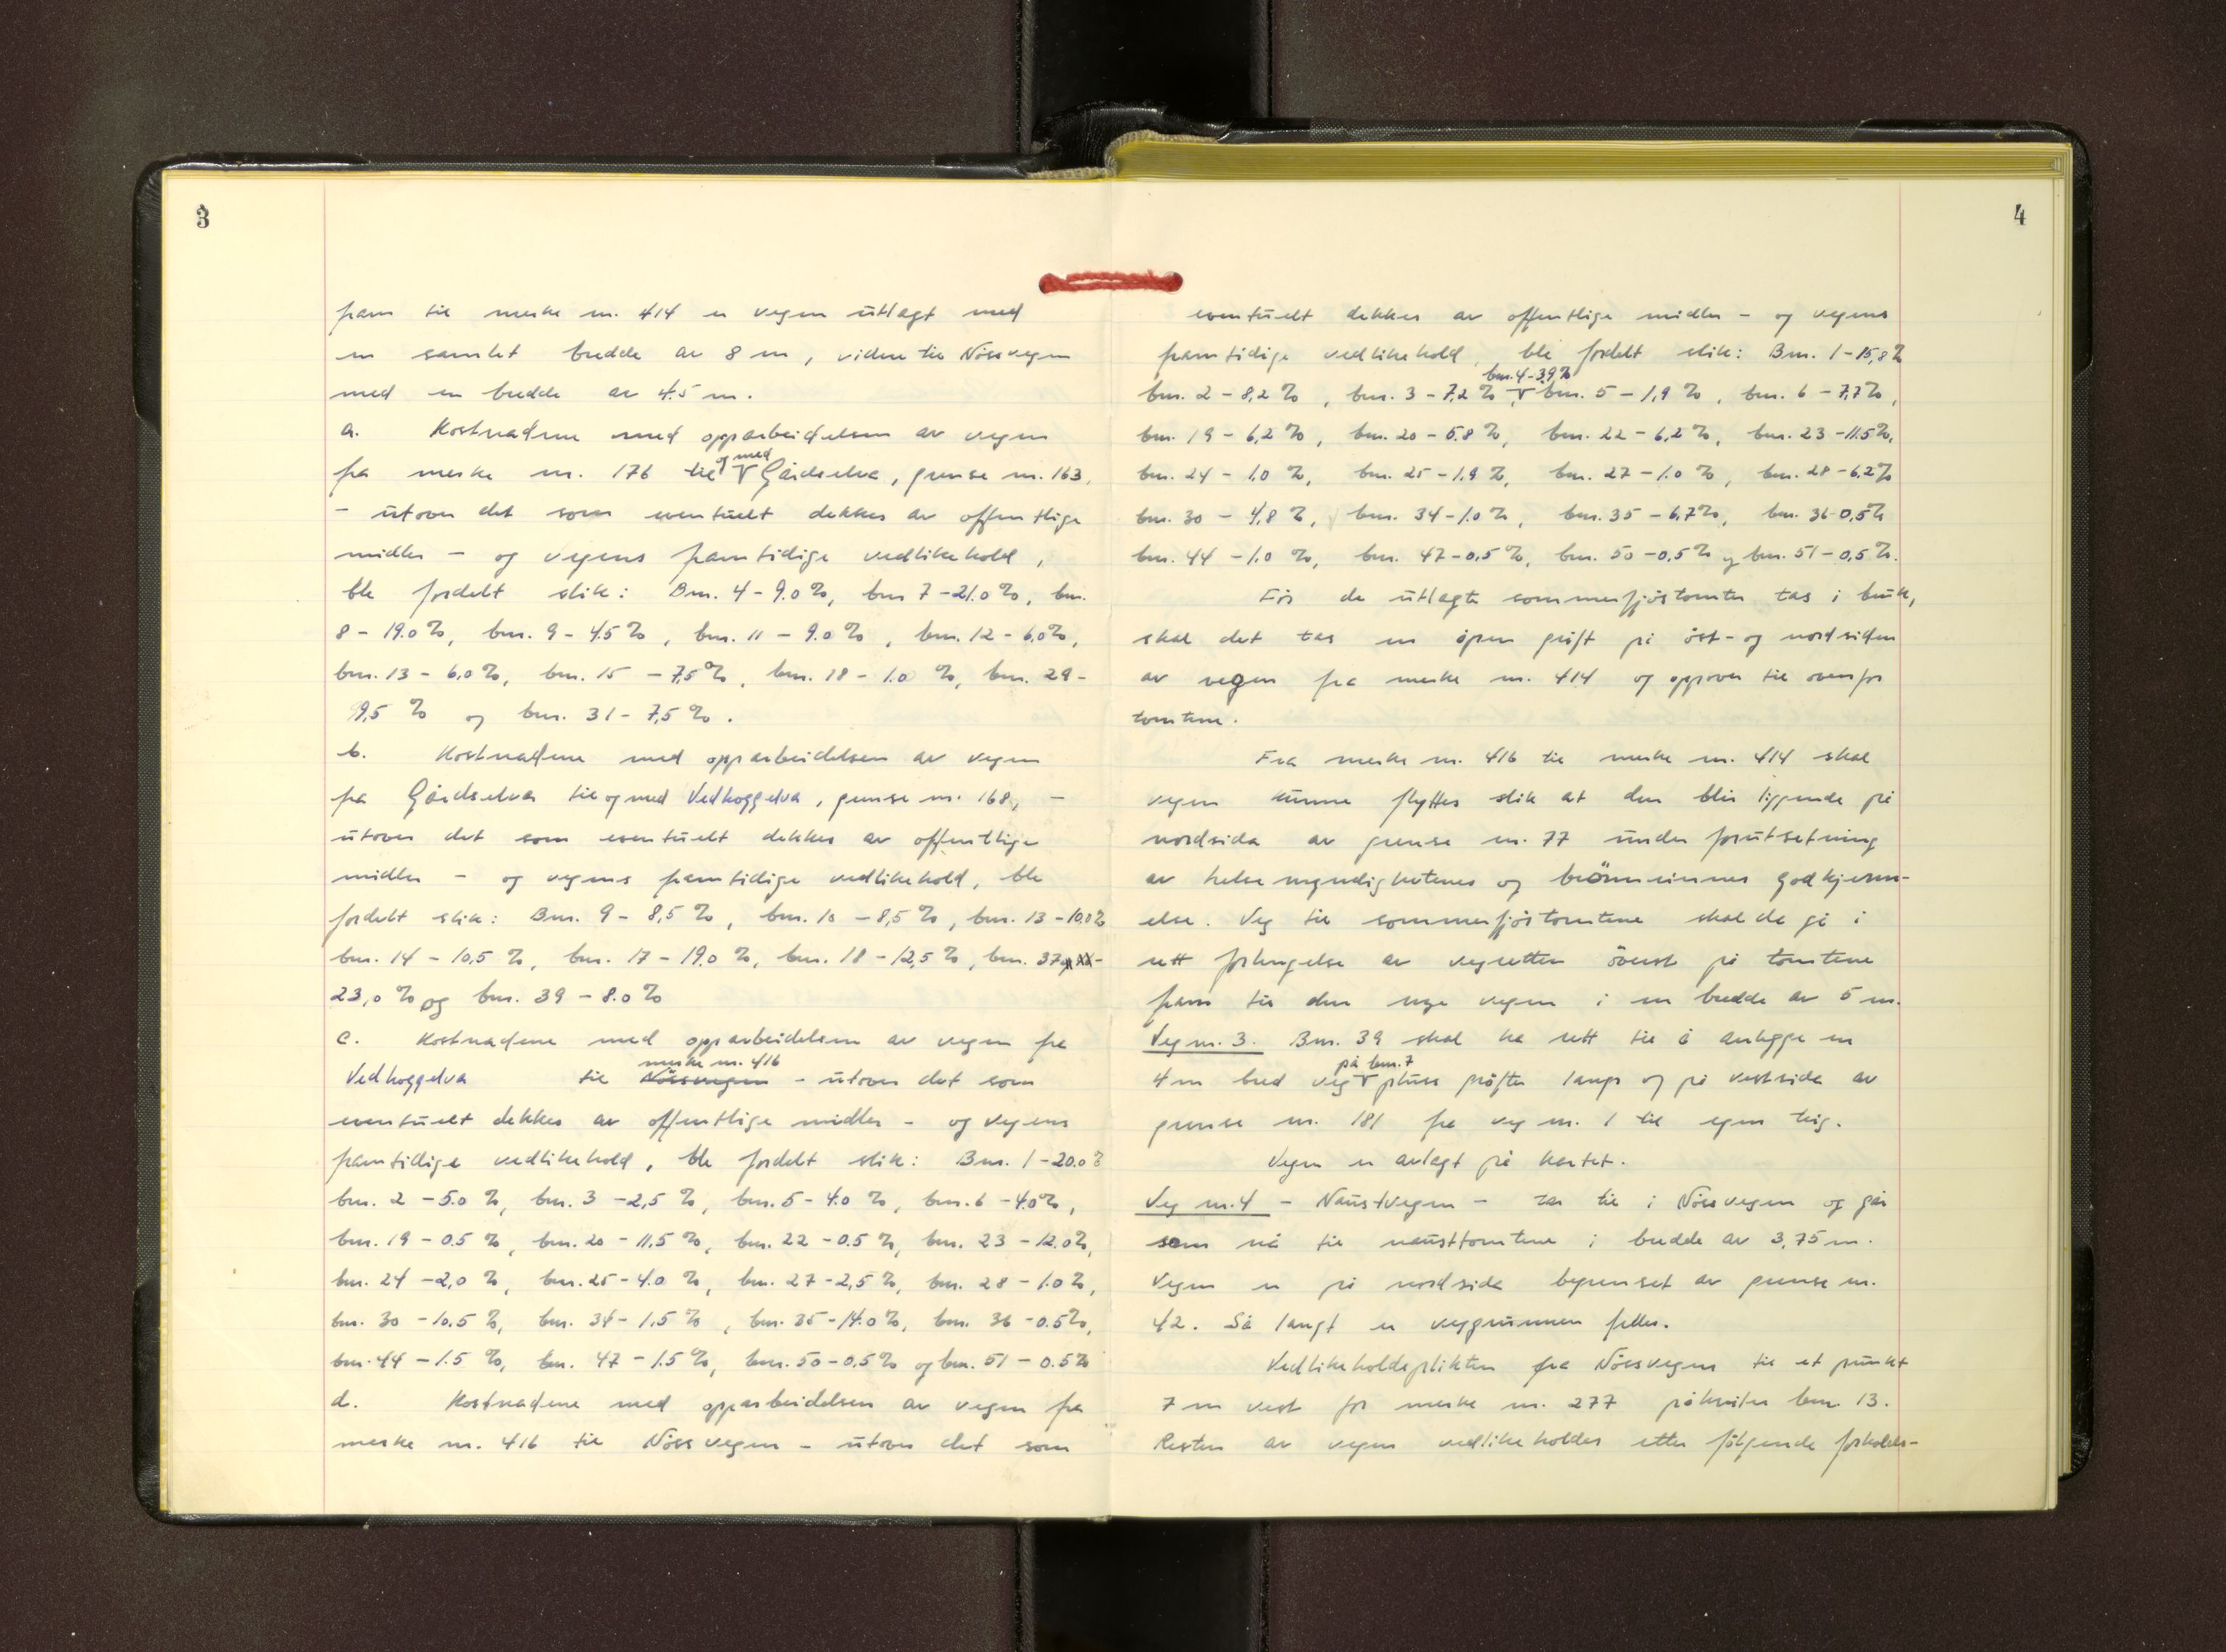 3
fram til merke nr. 414 er vegen utlagt med
en samlet bredde av 8 m, videre til Nössvegen
med en bredde av 4.5 m.
a. Kostnadene med opparbeidelsen av vegen
fra merke nr. 176 til og med Gårdselva, grense nr. 163,
- utover det som eventuelt dekkes av offentlige
midler - og vegens framtidige vedlikehold,
ble fordelt slik: Bnr. 4 - 9.0 %, bnr 7 - 21.0 %, bnr.
8 - 19.0 %, bnr. 9 - 4.5 %, bnr. 11 - 9.0 %, bnr. 12 - 6.0 %,
bnr. 13 - 6.0 %, bnr. 15 - 7.5 %, bnr. 18 - 1.0 %, bnr. 29 -
9,5 % og bnr. 31 - 7,5 %.
b. Kostnadene med opparbeidelsen av vegen
fra Gårdselva til og med Vedhoggelva, grense nr. 168, -
utover det som eventuelt dekkes av offentlige
midler - og vegens framtidige vedlikehold, ble
fordelt slik: Bnr. 9 - 8,5 %, bnr. 10 - 8,5 %, bnr. 13 - 10.0 %
bnr. 14 - 10,5 %, bnr. 17 - 19.0 %, bnr. 18 - 12,5 %, bnr. 37 -
23,0 % og bnr. 39 - 8.0 %
c. Kostnadene med opparbeidelsen av vegen fra
Vedhoggelva til Nössvegen merke nr. 416 - utover det som
eventuelt dekkes av offentlige midler - og vegens
framtidige vedlikehold, ble fordelt slik: Bnr. 1 - 20.0 %
bnr. 2 - 5.0 %, bnr. 3 - 2,5 %, bnr. 5 - 4.0 %, bnr. 6 - 4.0 %,
bnr. 19 - 0.5 %, bnr. 20 - 11,5 %, bnr. 22 - 0.5 %, bnr. 23 - 12.0 %,
bnr. 24 - 2,0 %, bnr. 25 - 4.0 %, bnr. 27 - 2,5 %, bnr. 28 - 1.0 %,
bnr. 30 - 10.5 %, bnr. 34 - 1,5 %, bnr. 35 - 14.0 %, bnr. 36 - 0.5 %,
bnr. 44 - 1.5 %, bnr. 47 - 1.5 %, bnr. 50 - 0,5 % og bnr. 51 - 0.5 %
d. Kostnadene med opparbeidelsen av vegen fra
merke nr. 416 til Nössvegen - utover det som
4
eventuelt dekkes av offentlige midler - og vegens
framtidige vedlikehold, ble fordelt slik: Bnr. 1 - 15,8 %
bnr. 2 - 8,2 %, bnr. 3 - 7,2 %, bnr. 4 - 3,9 % bnr. 5 - 1,9 %, bnr. 6 - 7,7 %,
bnr. 19 - 6,2 %, bnr. 20 - 5.8 %, bnr. 22 - 6,2 %, bnr. 23 - 11.5 %,
bnr. 24 - 1.0 %, bnr. 25 - 1,9 %, bnr. 27 - 1.0 %, bnr. 28 - 6.2 %
bnr. 30 - 4,8 %, bnr. 34 - 1.0 %, bnr. 35 - 6,7 %, bnr. 36 0,5 %
bnr. 44 - 1.0 %, bnr. 47 - 0,5 %, bnr. 50 - 0,5 % og bnr. 51 - 0,5 %.
Før de utlagte sommerfjöstomter tas i bruk,
skal det tas en åpen gröft på öst- og nordsiden
av vegen fra merke nr. 414 og oppover til ovenfor
tomtene.
Fra merke nr. 416 til merke nr. 414 skal
vegen kunne flyttes slik at den blir liggende på
nordsida av grense nr. 77 under forutsetning
av helsemyndighetenes og brönneiernes godkjenn-
else. Veg til sommerfjöstomtene skal da gå i
rett forlengelse av vegretten överst på tomtene
fram til den nye vegen i en bredde av 5 m.
Veg nr. 3. Bnr. 39 skal ha rett til å anlegge en
4 m bred veg på bnr. 7 pluss gröfter langs og på vestsida av
grense nr. 181 fra veg nr. 1 til egen teig.
Vegen er avlagt på kartet.
Veg nr. 4 - Naustvegen - tar til i Nössvegen og går
som nå til nausttomtene i bredde av 3,75 m.
Vegen er på nordsida begrenset av grense nr.
42. Så langt er veggrunnen felles.
Vedlikeholdsplikten fra Nössvegen til et punkt
7 m vest for merke nr. 277 påhviler bnr. 13.
Resten av vegen vedlikeholdes etter fölgende forholds-